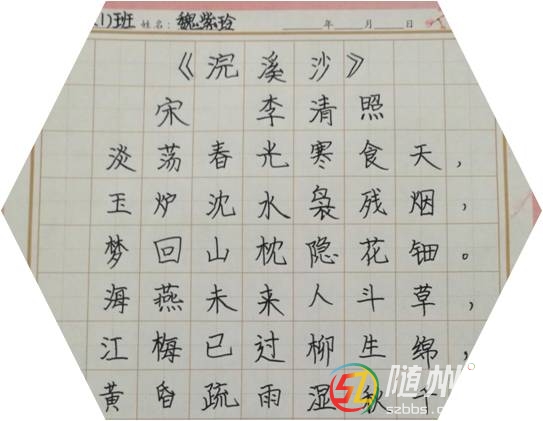 1)班 姓名：魏紫玲 年 月 日
《浣溪沙》
宋 李清照
淡荡春光寒食天，
玉炉沈水袅残烟，
梦回山枕隐花钿。
海燕未来人斗草，
江梅已过柳生绵，
黄昏疏雨湿秋千
随州